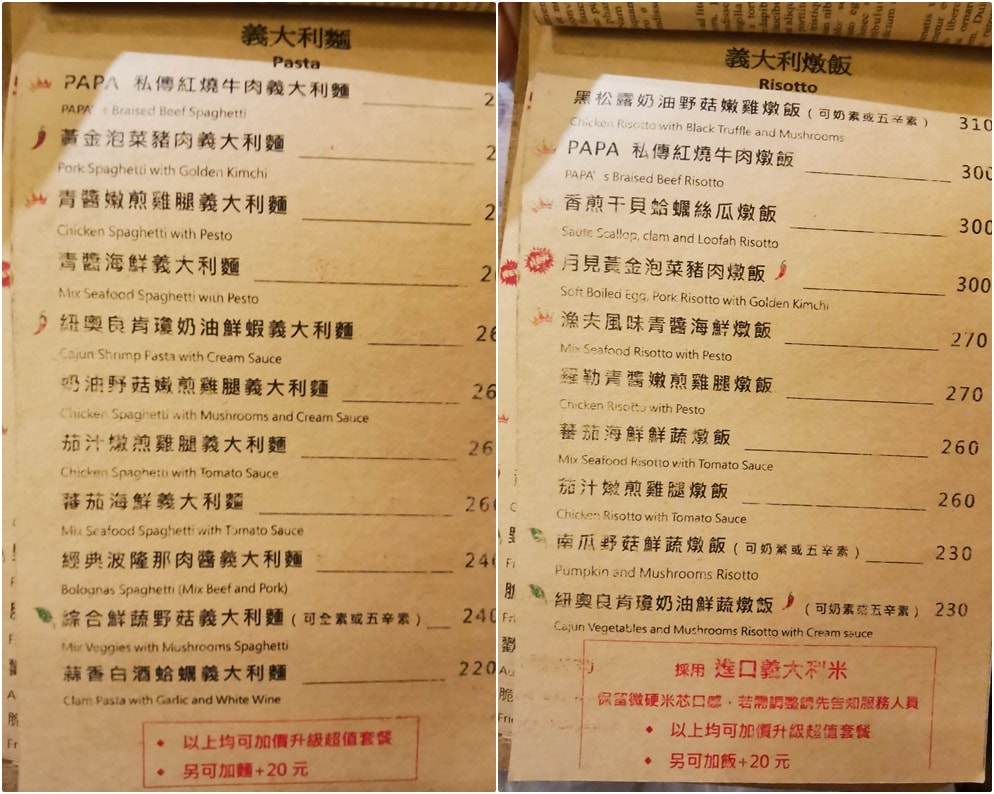 義大利麵
Pasta
PAPA 私傳紅燒牛肉義大利麵 2
PAPA's Braised Beef Spaghetti
黃金泡菜豬肉義大利麵 2
Pork Spaghetti with Golden Kimchi
青醬嫩煎雞腿義大利麵 2
Chicken Spaghetti with Pesto
青醬海鮮義大利麵 2
Mix Seafood Spaghetti with Pesto
紐奧良肯瓊奶油鮮蝦義大利麵 26
Cajun Shrimp Pasta with Cream Sauce
奶油野菇嫩煎雞腿義大利麵 26
Chicken Spaghetti with Mushrooms and Cream Sauce
茄汁嫩煎雞腿義大利麵 26
Chicken Spaghetti with Tomato Sauce
蕃茄海鮮義大利麵 260
Mix Seafood Spaghetti with Tomato Sauce
經典波隆那肉醬義大利麵 240
Bolognas Spaghetti (Mix Beef and Pork)
綜合鮮蔬野菇義大利麵 (可全素或五辛素) 240
Mix Veggies with Mushrooms Spaghetti
蒜香白酒蛤蠣義大利麵 220
Clam Pasta with Garlic and White Wine
◆ 以上均可加價升級超值套餐
◆ 另可加麵+20 元
義大利燉飯
Risotto
黑松露奶油野菇嫩雞燉飯 (可奶素或五辛素) 310
Chicken Risotto with Black Truffle and Mushrooms
PAPA 私傳紅燒牛肉燉飯 300
PAPA's Braised Beef Risotto
香煎干貝蛤蠣絲瓜燉飯 300
Saute Scallop, clam and Loofah Risotto
月見黃金泡菜豬肉燉飯 300
Soft Boiled Egg, Pork Risotto with Golden Kimchi
漁夫風味青醬海鮮燉飯 270
Mix Seafood Risotto with Pesto
羅勒青醬嫩煎雞腿燉飯 270
Chicken Risotto with Pesto
蕃茄海鮮鮮蔬燉飯 260
Mix Seafood Risotto with Tomato Sauce
茄汁嫩煎雞腿燉飯 260
Chicken Risotto with Tomato Sauce
南瓜野菇鮮蔬燉飯 (可奶素或五辛素) 230
Pumpkin and Mushrooms Risotto
紐奧良肯瓊奶油鮮蔬燉飯 (可奶素或五辛素) 230
Cajun Vegetables and Mushrooms Risotto with Cream sauce
採用 進口義大利米
保留微硬米芯口感，若需調整請先告知服務人員
◆ 以上均可加價升級超值套餐
◆ 另可加飯+20 元